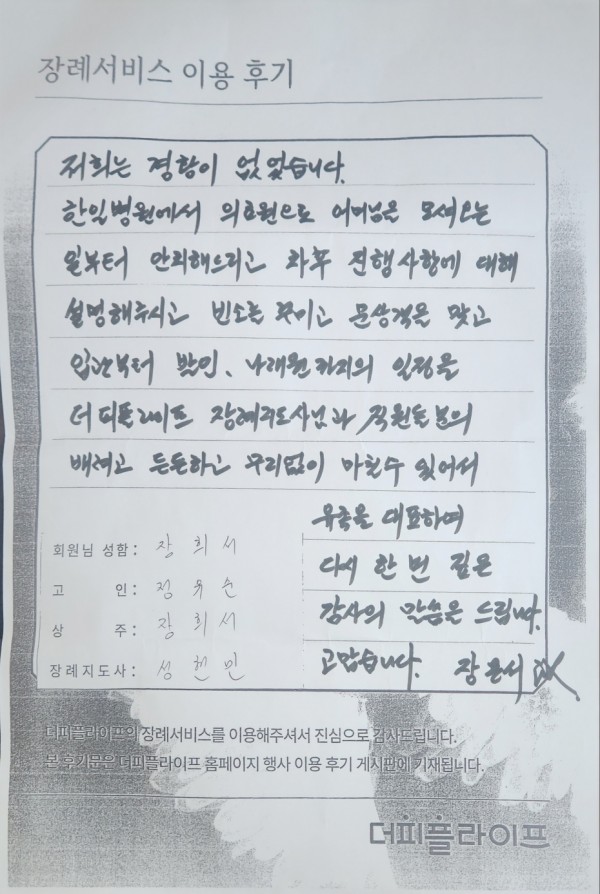 장례서비스 이용 후기
저희는 경황이 없었습니다.
한일병원에서 의료원으로 어머님을 모셔오는
일부터 안치해드리고 차후 진행사항에 대해
설명해주시고 빈소를 꾸미고 문상객을 맞고
입관부터 발인, 나래원까지의 일정을
더피플라이프 장례지도사님과 직원들분의
배려로 든든하고 무리없이 마칠수 있어서
유족을 대표하여
다시 한 번 깊은
감사의 말씀을 드립니다.
고맙습니다. 장희서
회원님 성함 : 장 희 서
고 인 : 정 유 순
상 주 : 장 희 서
장례지도사 : 성 민
더피플라이프의 장례서비스를 이용해주셔서 진심으로 감사드립니다.
본 후기문은 더피플라이프 홈페이지 행사 이용 후기 게시판에 기재됩니다.
더피플라이프